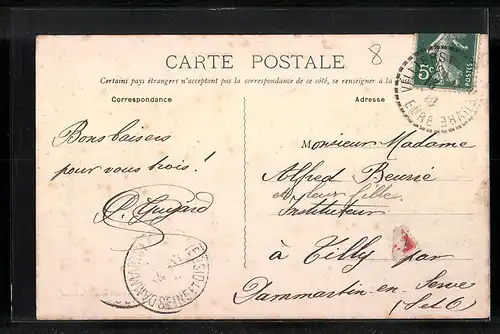 CARTE POSTALE
8
Certains pays étrangers n'acceptant pas la correspondance de ce côté, se renseigner à la
Correspondance
Adresse
5c
POSTES
EURE
Bons baisers
pour vous trois !
Monsieur Madame
Alfred Beurié
et leur fille
Instituteur
à Tilly par
Dammartin-en-Serve
(S et O)
SEINE-ET-OISE